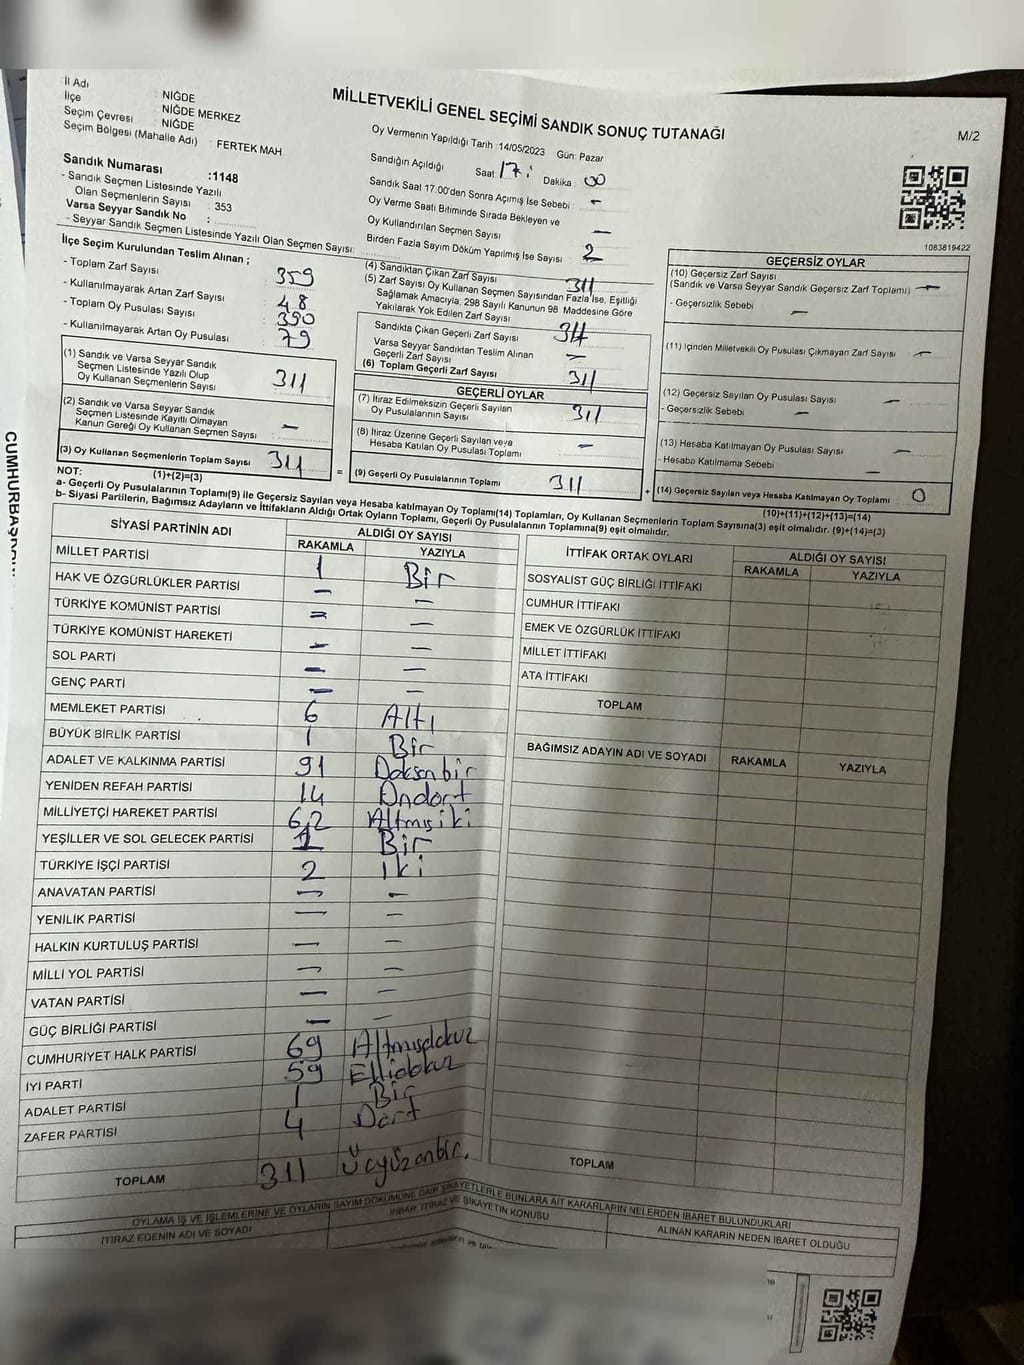 MİLLETVEKİLİ GENEL SEÇİMİ SANDIK SONUÇ TUTANAĞI
M/2
İl Adı NİĞDE
İlçe NİĞDE MERKEZ
Seçim Çevresi NİĞDE
Seçim Bölgesi (Mahalle Adı) FERTEK MAH
Sandık Numarası :1148
- Sandık Seçmen Listesinde Yazılı
Olan Seçmenlerin Sayısı : 353
Varsa Seyyar Sandık No :
- Seyyar Sandık Seçmen Listesinde Yazılı Olan Seçmen Sayısı:
Oy Vermenin Yapıldığı Tarih :14/05/2023 Gün: Pazar
Sandığın Açıldığı Saat: 17: Dakika: 00
Sandık Saat 17.00'den Sonra Açımış İse Sebebi : -
Oy Verme Saati Bitiminde Sırada Bekleyen ve
Oy Kullandırılan Seçmen Sayısı —
Birden Fazla Sayım Döküm Yapılmış İse Sayısı : 2
1083819422
İlçe Seçim Kurulundan Teslim Alınan ;
- Toplam Zarf Sayısı : 359
- Kullanılmayarak Artan Zarf Sayısı : 48
- Toplam Oy Pusulası Sayısı : 390
- Kullanılmayarak Artan Oy Pusulası : 79
(1) Sandık ve Varsa Seyyar Sandık
Seçmen Listesinde Yazılı Olup
Oy Kullanan Seçmenlerin Sayısı : 311
(2) Sandık ve Varsa Seyyar Sandık
Seçmen Listesinde Kayıtlı Olmayan
Kanun Gereği Oy Kullanan Seçmen Sayısı : —
(3) Oy Kullanan Seçmenlerin Toplam Sayısı 311
(4) Sandıktan Çıkan Zarf Sayısı 311
(5) Zarf Sayısı Oy Kullanan Seçmen Sayısından Fazla İse, Eşitliği
Sağlamak Amacıyla, 298 Sayılı Kanunun 98 Maddesine Göre
Yakılarak Yok Edilen Zarf Sayısı
Sandıkta Çıkan Geçerli Zarf Sayısı 311
Varsa Seyyar Sandıktan Teslim Alınan
Geçerli Zarf Sayısı —
(6) Toplam Geçerli Zarf Sayısı 311
GEÇERLİ OYLAR
(7) İtiraz Edilmeksizin Geçerli Sayılan
Oy Pusulalarının Sayısı : 311
(8) İtiraz Üzerine Geçerli Sayılan veya
Hesaba Katılan Oy Pusulası Toplamı : —
= (9) Geçerli Oy Pusulalarının Toplamı 311
GEÇERSİZ OYLAR
(10) Geçersiz Zarf Sayısı
(Sandık ve Varsa Seyyar Sandık Geçersiz Zarf Toplamı) —
- Geçersizlik Sebebi : —
(11) İçinden Milletvekili Oy Pusulası Çıkmayan Zarf Sayısı : —
(12) Geçersiz Sayılan Oy Pusulası Sayısı : —
- Geçersizlik Sebebi : —
(13) Hesaba Katılmayan Oy Pusulası Sayısı : —
- Hesaba Katılmama Sebebi : —
+ (14) Geçersiz Sayılan veya Hesaba Katılmayan Oy Toplamı : 0
NOT: (1)+(2)=(3)
(10)+(11)+(12)+(13)=(14)
a- Geçerli Oy Pusulalarının Toplamı(9) ile Geçersiz Sayılan veya Hesaba katılmayan Oy Toplamı(14) Toplamları, Oy Kullanan Seçmenlerin Toplam Sayısına(3) eşit olmalıdır. (9)+(14)=(3)
b- Siyasi Partilerin, Bağımsız Adayların ve İttifakların Aldığı Ortak Oyların Toplamı, Geçerli Oy Pusulalarının Toplamına(9) eşit olmalıdır.
SİYASİ PARTİNİN ADI ALDIĞI OY SAYISI
RAKAMLA YAZIYLA
MİLLET PARTİSİ 1 Bir
HAK VE ÖZGÜRLÜKLER PARTİSİ — —
TÜRKİYE KOMÜNİST PARTİSİ = —
TÜRKİYE KOMÜNİST HAREKETİ — —
SOL PARTİ — —
GENÇ PARTİ — —
MEMLEKET PARTİSİ 6 Altı
BÜYÜK BİRLİK PARTİSİ 1 Bir
ADALET VE KALKINMA PARTİSİ 91 Doksanbir
YENİDEN REFAH PARTİSİ 14 Ondört
MİLLİYETÇİ HAREKET PARTİSİ 62 Altmışiki
YEŞİLLER VE SOL GELECEK PARTİSİ 1 Bir
TÜRKİYE İŞÇİ PARTİSİ 2 İki
ANAVATAN PARTİSİ — —
YENİLİK PARTİSİ — —
HALKIN KURTULUŞ PARTİSİ — —
MİLLİ YOL PARTİSİ — —
VATAN PARTİSİ — —
GÜÇ BİRLİĞİ PARTİSİ — —
CUMHURİYET HALK PARTİSİ 69 Altmışdokuz
İYİ PARTİ 59 Ellidokuz
ADALET PARTİSİ 1 Bir
ZAFER PARTİSİ 4 Dört
TOPLAM 311 Üçyüzonbir.
İTTİFAK ORTAK OYLARI ALDIĞI OY SAYISI
RAKAMLA YAZIYLA
SOSYALİST GÜÇ BİRLİĞİ İTTİFAKI
CUMHUR İTTİFAKI
EMEK VE ÖZGÜRLÜK İTTİFAKI
MİLLET İTTİFAKI
ATA İTTİFAKI
TOPLAM
BAĞIMSIZ ADAYIN ADI VE SOYADI RAKAMLA YAZIYLA
TOPLAM
OYLAMA İŞ VE İŞLEMLERİNE VE OYLARIN SAYIM DÖKÜMÜNE DAİR ŞİKAYETLERLE BUNLARA AİT KARARLARIN NELERDEN İBARET BULUNDUKLARI
İTİRAZ EDENİN ADI VE SOYADI
İHBAR, İTİRAZ VE ŞİKAYETİN KONUSU
ALINAN KARARIN NEDEN İBARET OLDUĞU